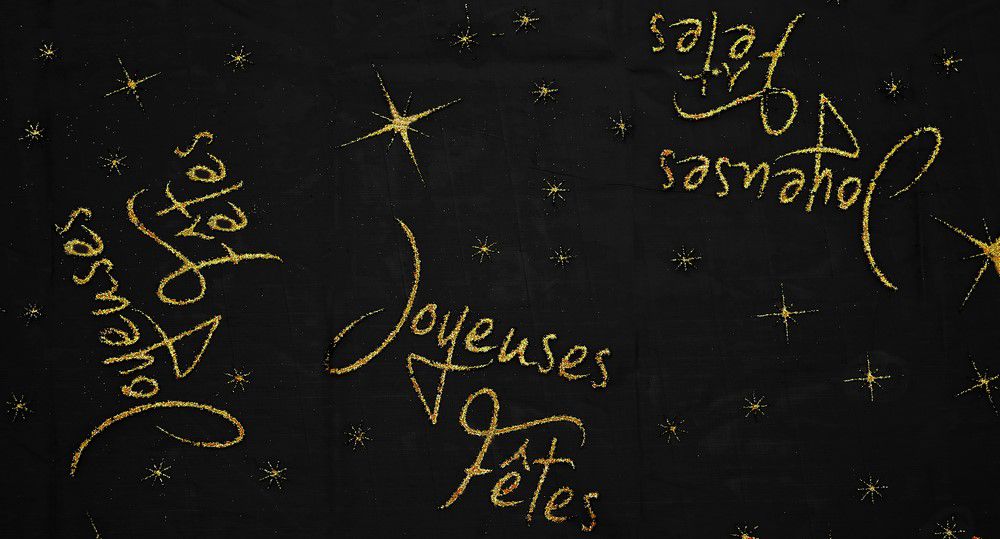 Joyeuses
fêtes
Joyeuses
fêtes
Joyeuses
Fêtes